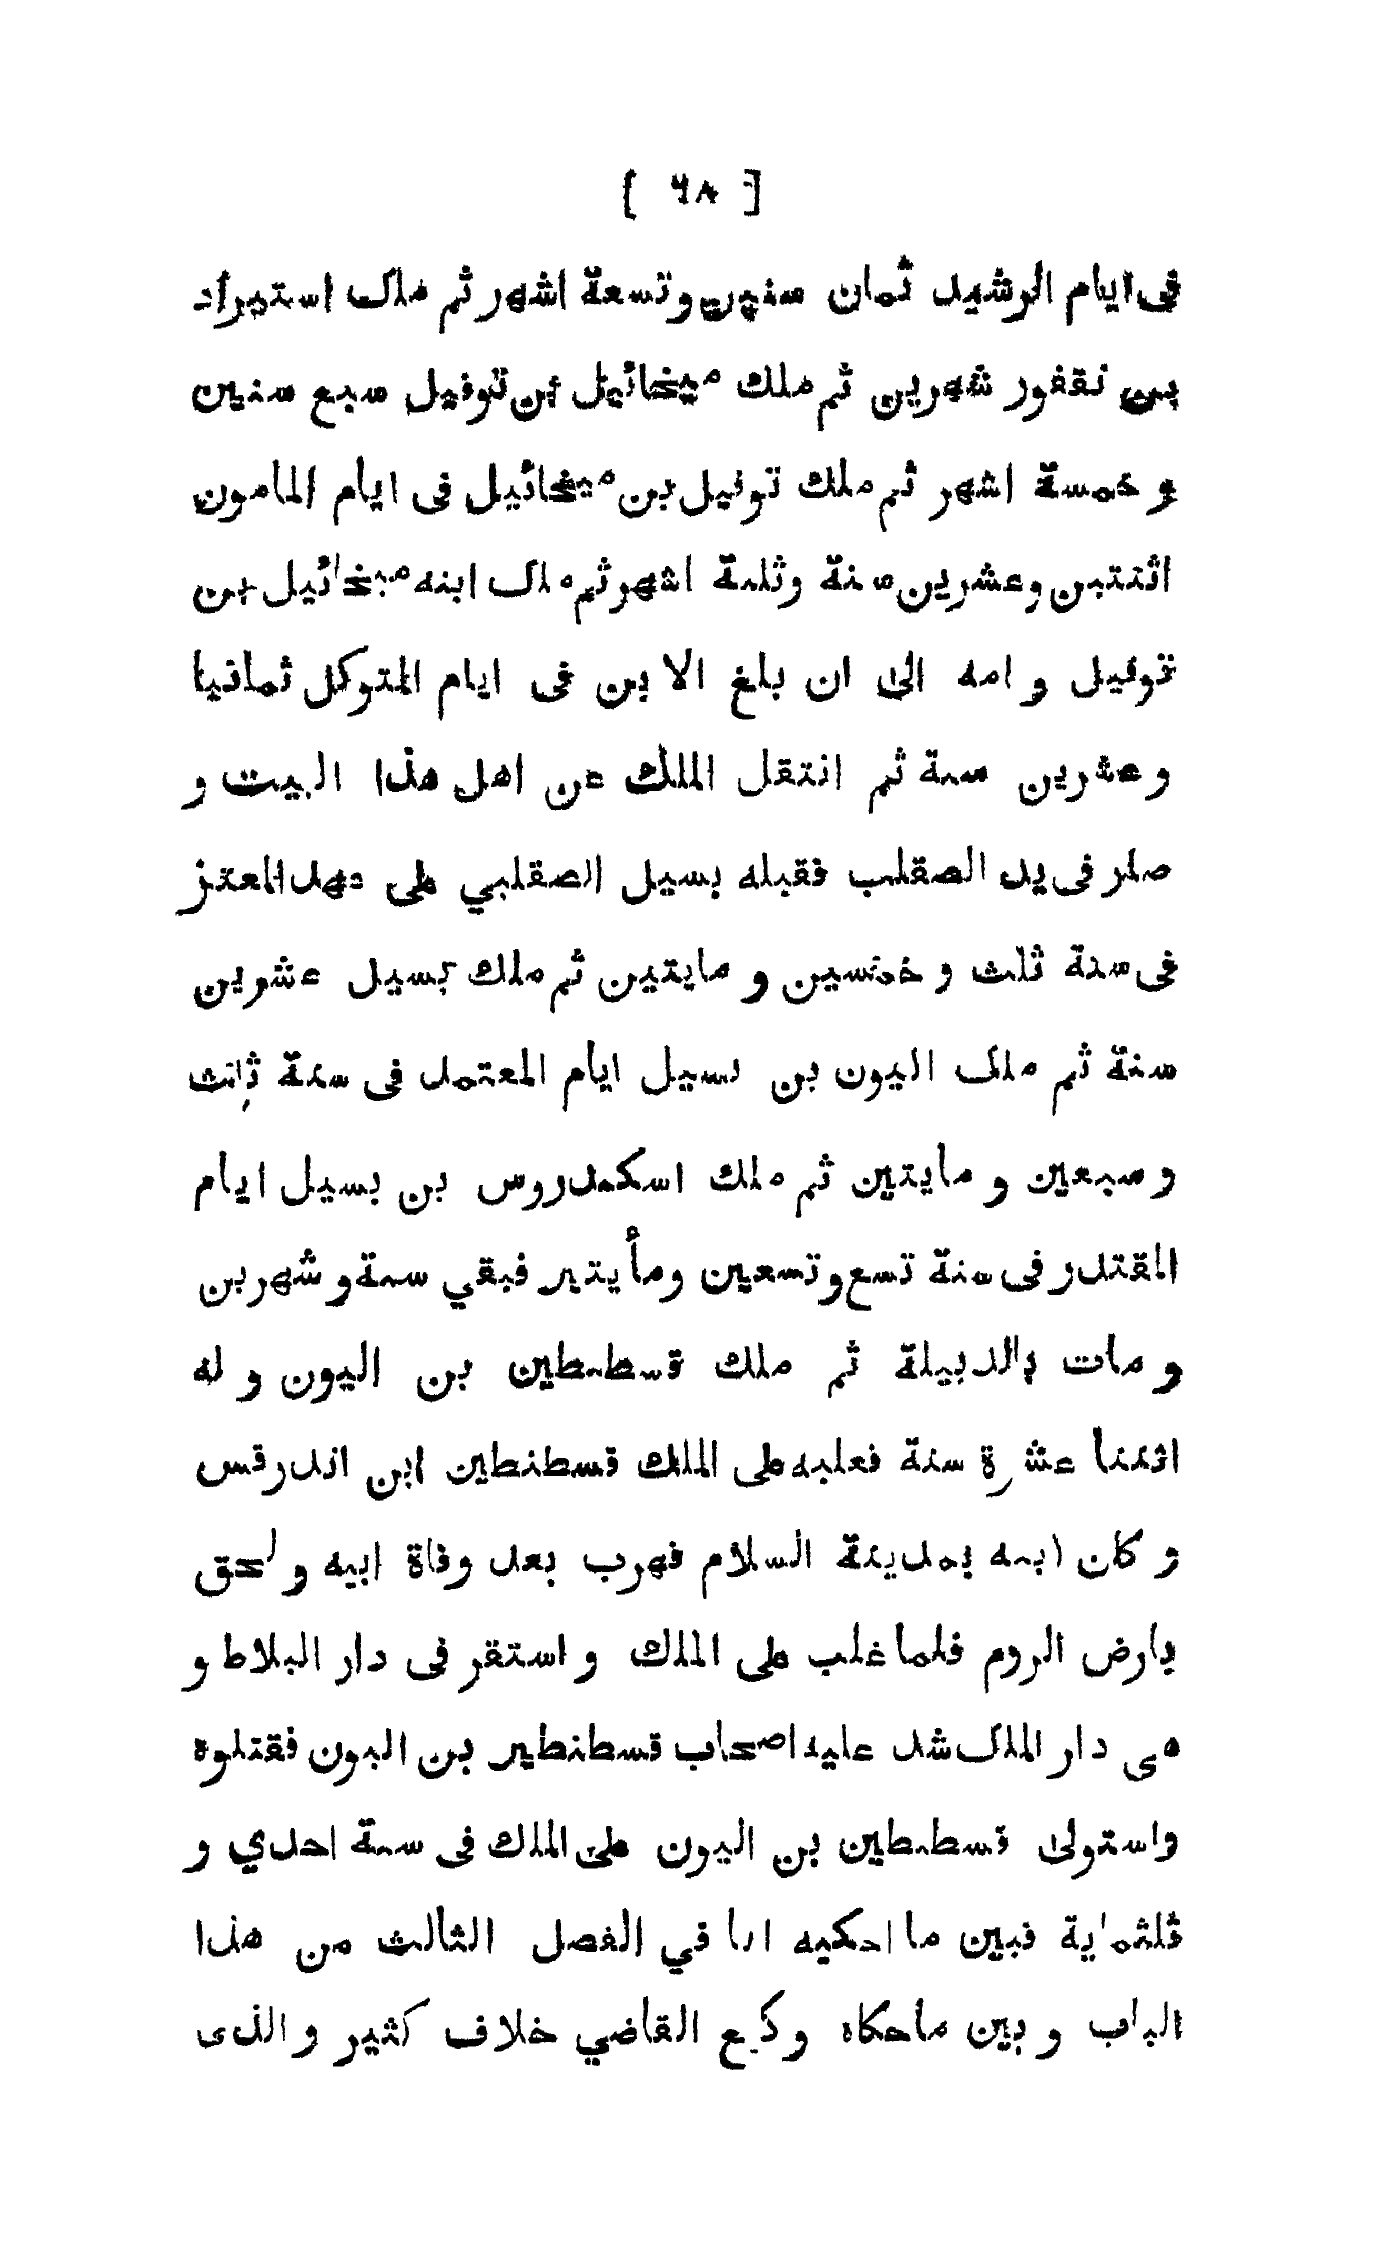 [ ٦٨ ]
فى ايام الرشيد ثمان سنين وتسعة اشهر ثم ملك استيراد
بن نقفور شهرين ثم ملك ميخائيل بن توفيل سبع سنين
و خمسة اشهر ثم ملك توفيل بن ميخائيل فى ايام المامون
اثنتين وعشرين سنة وثلثة اشهر ثم ملك ابنه ميخائيل بن
توفيل و امه الى ان بلغ الابن فى ايام المتوكل ثمانيا
وعشرين سنة ثم انتقل الملك عن اهل هذا البيت و
صار فى يد الصقلب فقبله بسيل الصقلبي على عهد المعتز
فى سنة ثلث و خمسين و مايتين ثم ملك بسيل عشرين
سنة ثم ملك اليون بن بسيل ايام المعتمد فى سنة ثلث
و سبعين و مايتين ثم ملك اسكندروس بن بسيل ايام
المقتدر فى سنة تسع وتسعين ومأيتين فبقي سنة و شهرين
و مات بالدبيلة ثم ملك قسطنطين بن اليون و له
اثنتا عشرة سنة فعلبه على الملك قسطنطين ابن اندرقس
و كان ابنه بمدينة السلام فهرب بعد وفاة ابيه و لحق
بارض الروم فلما غلب على الملك و استقر فى دار البلاط و
هى دار الملك شد عليه اصحاب قسطنطين بن اليون فقتلوه
واستولى قسطنطين بن اليون على الملك فى سنة احدي و
ثلثماية فبين ما احكيه انا في الفصل الثالث من هذا
الباب و بين ماحكاه وكيع القاضي خلاف كثير و الذى